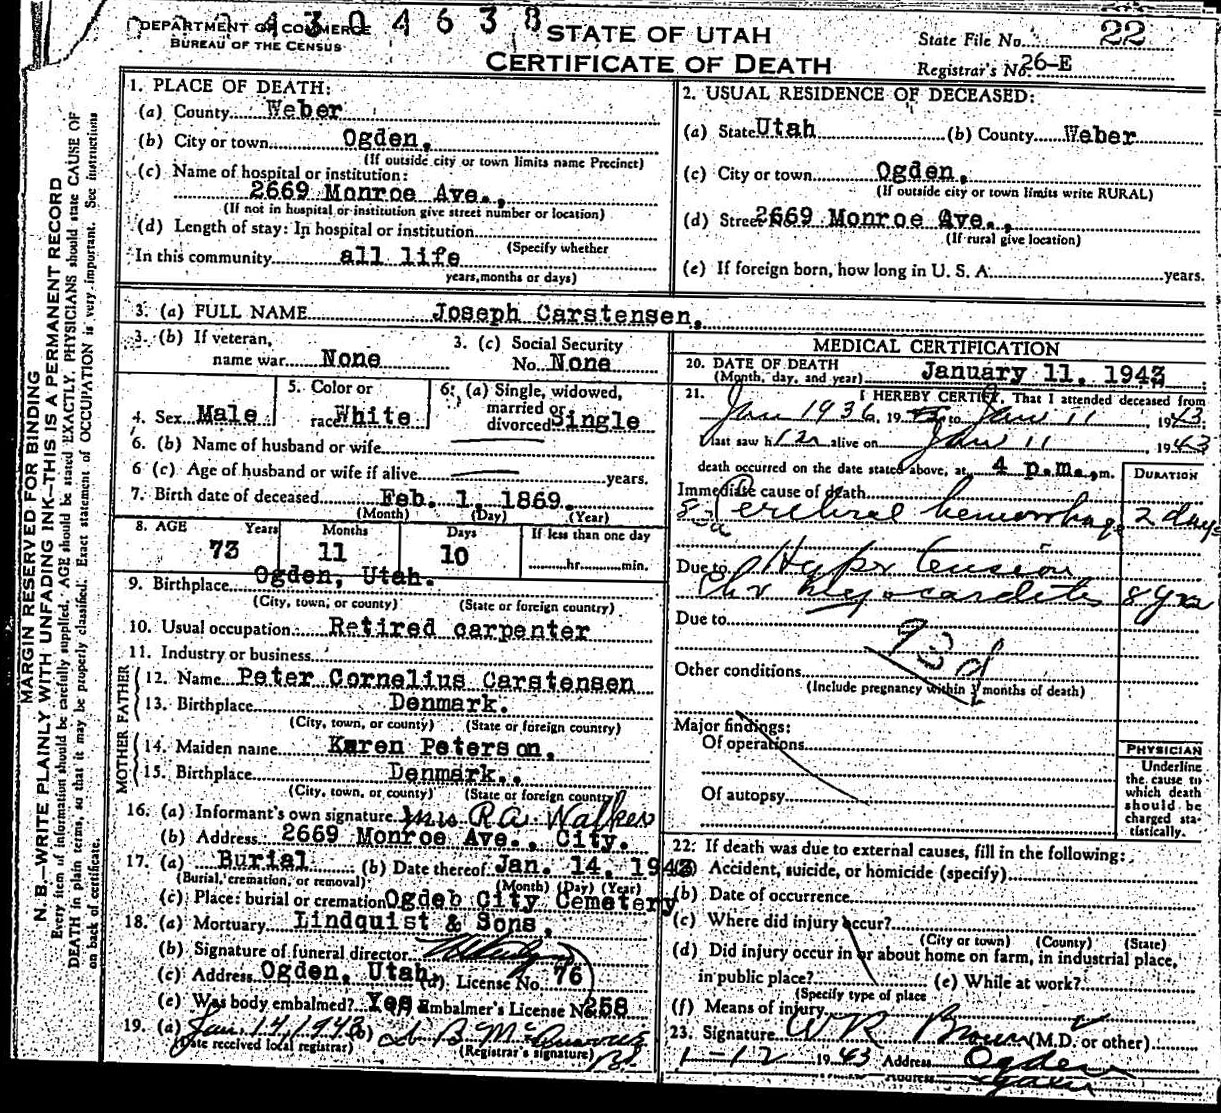 DEPARTMENT OF COMMERCE
BUREAU OF THE CENSUS
4304638
STATE OF UTAH
CERTIFICATE OF DEATH
State File No. 22
Registrar's No. 26-E
MARGIN RESERVED FOR BINDING
N. B.—WRITE PLAINLY WITH UNFADING INK—THIS IS A PERMANENT RECORD
Every item of information should be carefully supplied. AGE should be stated EXACTLY. PHYSICIANS should state CAUSE OF
DEATH in plain terms, so that it may be properly classified. Exact statement of OCCUPATION is very important. See instructions
on back of certificate.
1. PLACE OF DEATH:
(a) County Weber
(b) City or town Ogden,
(If outside city or town limits name Precinct)
(c) Name of hospital or institution:
2669 Monroe Ave.,
(If not in hospital or institution give street number or location)
(d) Length of stay: In hospital or institution
(Specify whether
In this community all life
years, months or days)
2. USUAL RESIDENCE OF DECEASED:
(a) State Utah (b) County Weber
(c) City or town Ogden,
(If outside city or town limits write RURAL)
(d) Street 2669 Monroe Ave.,
(If rural give location)
(e) If foreign born, how long in U. S. A. years.
3. (a) FULL NAME Joseph Carstensen,
3. (b) If veteran,
name war None
3. (c) Social Security
No. None
4. Sex Male
5. Color or
race White
6. (a) Single, widowed,
married or
divorced Single
6. (b) Name of husband or wife
6 (c) Age of husband or wife if alive years.
7. Birth date of deceased Feb. 1, 1869.
(Month) (Day) (Year)
8. AGE Years Months Days If less than one day
73 11 10 hr. min.
9. Birthplace Ogden, Utah.
(City, town, or county) (State or foreign country)
10. Usual occupation Retired carpenter
11. Industry or business
FATHER
12. Name Peter Cornelius Carstensen
13. Birthplace Denmark.
(City, town, or county) (State or foreign country)
MOTHER
14. Maiden name Karen Peterson,
15. Birthplace Denmark.
(City, town, or county) (State or foreign country)
16. (a) Informant's own signature Mrs R A Walker
(b) Address 2669 Monroe Ave., City.
17. (a) Burial (b) Date thereof Jan. 14, 1943
(Burial, cremation, or removal) (Month) (Day) (Year)
(c) Place: burial or cremation Ogdeb City Cemetery
18. (a) Mortuary Lindquist & Sons,
(b) Signature of funeral director
(c) Address Ogden, Utah, (d) License No. 76
(e) Was body embalmed? Yes Embalmer's License No. 258
19. (a) Jan. 14, 1943 (b)
(Date received local registrar) (Registrar's signature)
MEDICAL CERTIFICATION
20. DATE OF DEATH
(Month, day, and year) January 11, 1943
21. I HEREBY CERTIFY, That I attended deceased from
Jan 1936, 19 to Jan 11, 1943.
I last saw him alive on Jan 11 1943
death occurred on the date stated above, at 4 p.m., m.
DURATION
Immediate cause of death
Cerebral hemorrhage 2 days
Due to Hypertension
Chr Myocarditis 8 yrs
Due to
93d
Other conditions
(Include pregnancy within 3 months of death)
Major findings:
Of operations
Of autopsy
PHYSICIAN
Underline
the cause to
which death
should be
charged sta-
tistically.
22. If death was due to external causes, fill in the following:
(a) Accident, suicide, or homicide (specify)
(b) Date of occurrence
(c) Where did injury occur?
(City or town) (County) (State)
(d) Did injury occur in or about home on farm, in industrial place,
in public place? (e) While at work?
(Specify type of place
(f) Means of injury
23. Signature W R Brown (M.D. or other)
1-12 1943 Address Ogden
Address